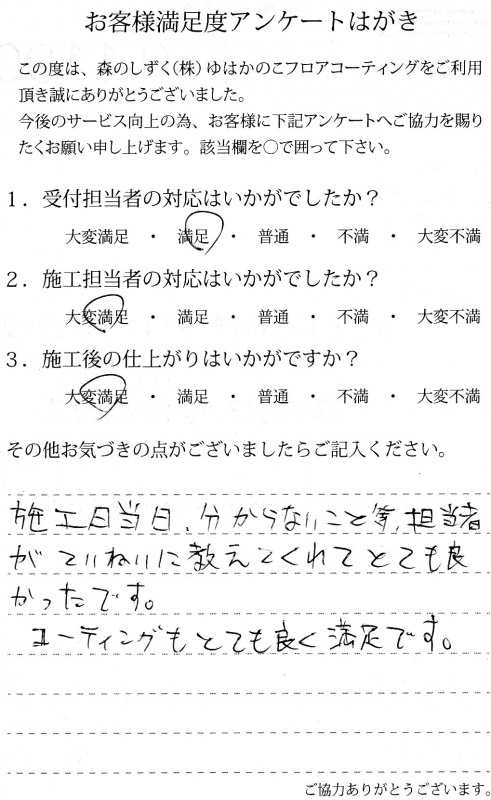 お客様満足度アンケートはがき
この度は、森のしずく(株)ゆはかのこフロアコーティングをご利用
頂き誠にありがとうございました。
今後のサービス向上の為、お客様に下記アンケートへご協力を賜り
たくお願い申し上げます。該当欄を○で囲って下さい。
1．受付担当者の対応はいかがでしたか？
大変満足 ・ 満足 ・ 普通 ・ 不満 ・ 大変不満
2．施工担当者の対応はいかがでしたか？
大変満足 ・ 満足 ・ 普通 ・ 不満 ・ 大変不満
3．施工後の仕上がりはいかがですか？
大変満足 ・ 満足 ・ 普通 ・ 不満 ・ 大変不満
その他お気づきの点がございましたらご記入ください。
施工日当日、分からないこと等、担当者
がていねいに教えてくれてとても良
かったです。
コーティングもとても良く満足です。
ご協力ありがとうございます。